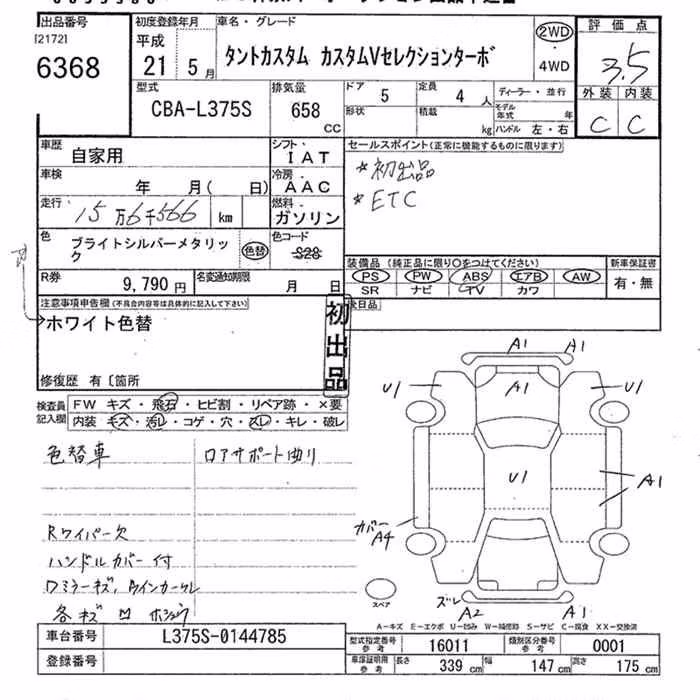 出品番号 初度登録年月 車名・グレード 評価点
[2172] 平成 2WD
6368 21年 5月 タントカスタム カスタムVセレクションターボ ・ 3.5
4WD
型式 排気量 ドア 5 定員 4人 ディーラー・並行 外装 内装
CBA-L375S 658 cc 形状 積載 kg モデル年式 年 C C
ハンドル 左・右
車歴 自家用 シフト IAT セールスポイント(正常に機能するものに限ります)
車検 年 月( 日) 冷房 AAC *初出品
走行 15万6千566 km 燃料 ガソリン *ETC
色 ブライトシルバーメタリック 色替 色コード S28
装備品(純正品に限り○をつけてください) 新車保証書
R券 9,790円 名変通知期限 月 日 PS PW ABS エアB AW 有・無
SR ナビ TV カワ
注意事項申告欄(不具合内容等は具体的に記入して下さい) 後日品
ホワイト色替 初出品
修復歴 有〔箇所
検査員記入欄 FW キズ・飛石・ヒビ割・リペア跡・×要
内装 キズ・汚レ・コゲ・穴・スレ・キレ・破レ
A1 A1
U1 A1 U1
色替車 ロアサポート曲り
U1 A1
Rワイパー欠 カバー A4
ハンドルカバー付
Dミラーキズ,
各キズ 凹
スペア ズレ A2 A1
A-キズ E-エクボ U-凹み W-補修跡 S-サビ C-腐食 XX-交換済
車台番号 L375S-0144785 型式指定番号 参考 16011 類別区分番号 参考 0001
登録番号 車庫証明用 参考 長さ 339 cm 幅 147 cm 高さ 175 cm